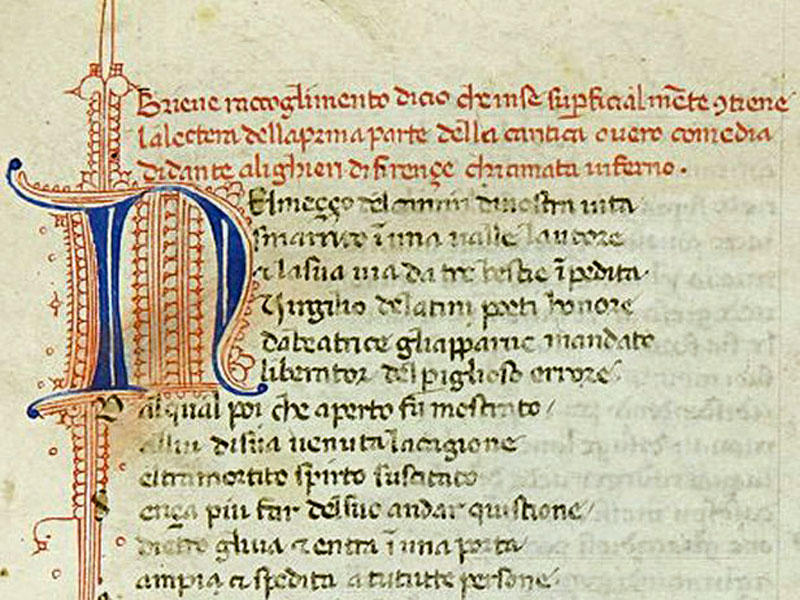 Brieue raccoglimento dicio che inse supficialmẽte ꝯtiene
la lectera dellaprima parte della cantica ouero comedia
di dante alighieri di firençe chiamata inferno.
NElmeçço del camin di nostra uita
smarrito ĩ una ualle lautore
& la sua uia da tre bestie ĩpedita.
Virgilio de latini poeti honore
da beatrice gliapparue mandato
liberator del piglioso errore
D alqual poi che aperto fu mostrato
allui di sua uenuta lacagione
eltramortito spirto suscitato
S ença piu far del suo andar quistione
dietro gliua & entra ĩ una porta
ampia & spedita a tutte persone